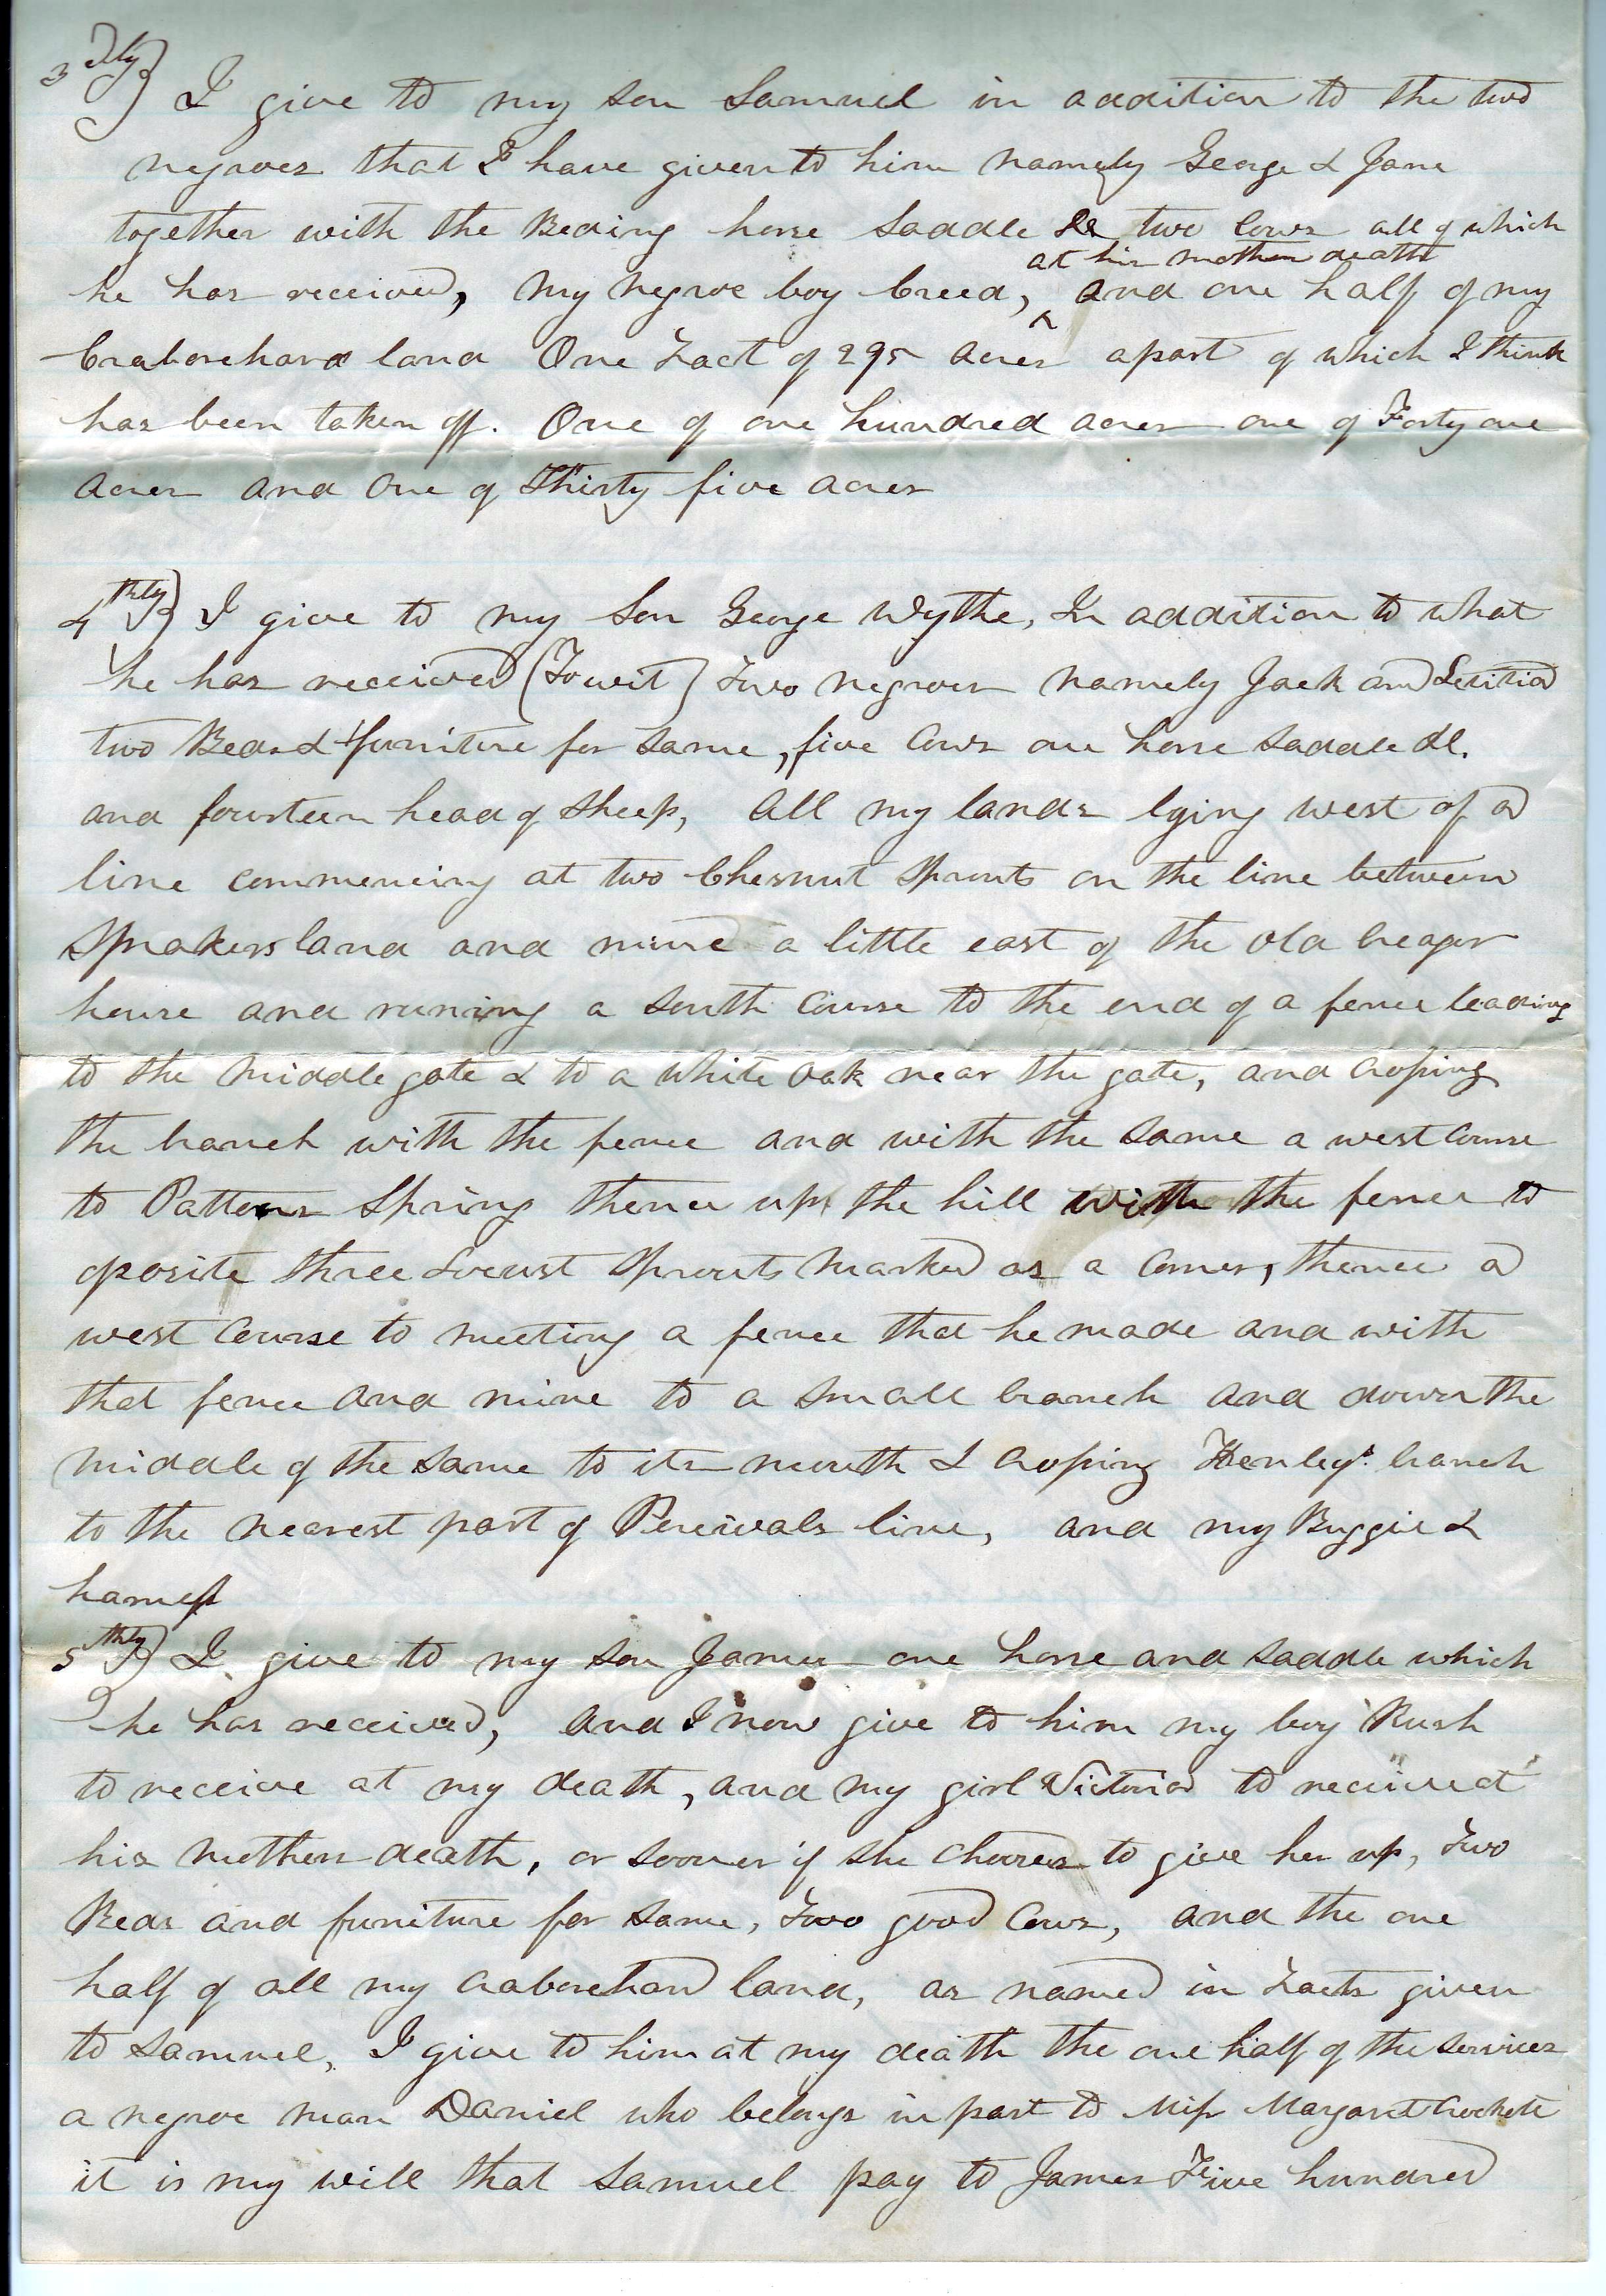 3dly) I give to my son Samuel in addition to the two
negroes that I have given to him namely George & Jane
together with the Beding horse Saddle &c two Cows all of which
at his mothers death
he has received, my negroe boy Creed, ^ and one half of my
Craborchard land One Tract of 295 acres apart of which I think
has been taken off. One of one hundred acres one of Forty one
acres and One of Thirty five acres
4thly) I give to my Son George Wythe, In addition to what
he has received (Towit) Two negroes namely Jack and Letitia
two Beds & furniture for same, five Cows one horse Saddle &c.
and fourteen head of Sheep, All my lands lying west of a
line commencing at two Chesnut Sprouts on the line between
Sprakers land and mine a little east of the old
house and runing a South Course to the end of a fence leading
to the middle gate & to a White Oak near the gate, and Crossing
the branch with the fence and with the same a west Course
to Pattons Spring thence up the hill with the fence to
oposite three Locust Sprouts marked as a Corner, thence a
west Course to meeting a fence that he made and with
that fence and mine to a small branch and down the
middle of the same to its mouth & Crossing Henley's branch
to the nearest part of Percivals line, and my Buggie &
harness
5thly) I give to my son James one horse and saddle which
he has received, and I now give to him my boy Rush
to receive at my death, and my girl Victoria to receive at
his mothers death, or sooner if she chooses to give her up, Two
Beds and funiture for same, Two good Cows, and the one
half of all my Craborchard land, as named in Tracts given
to Samuel, I give to him at my death the one half of the services
a negroe man Daniel who belongs in part to Miss Margaret Crockett
it is my will that Samuel pay to James Five hundred